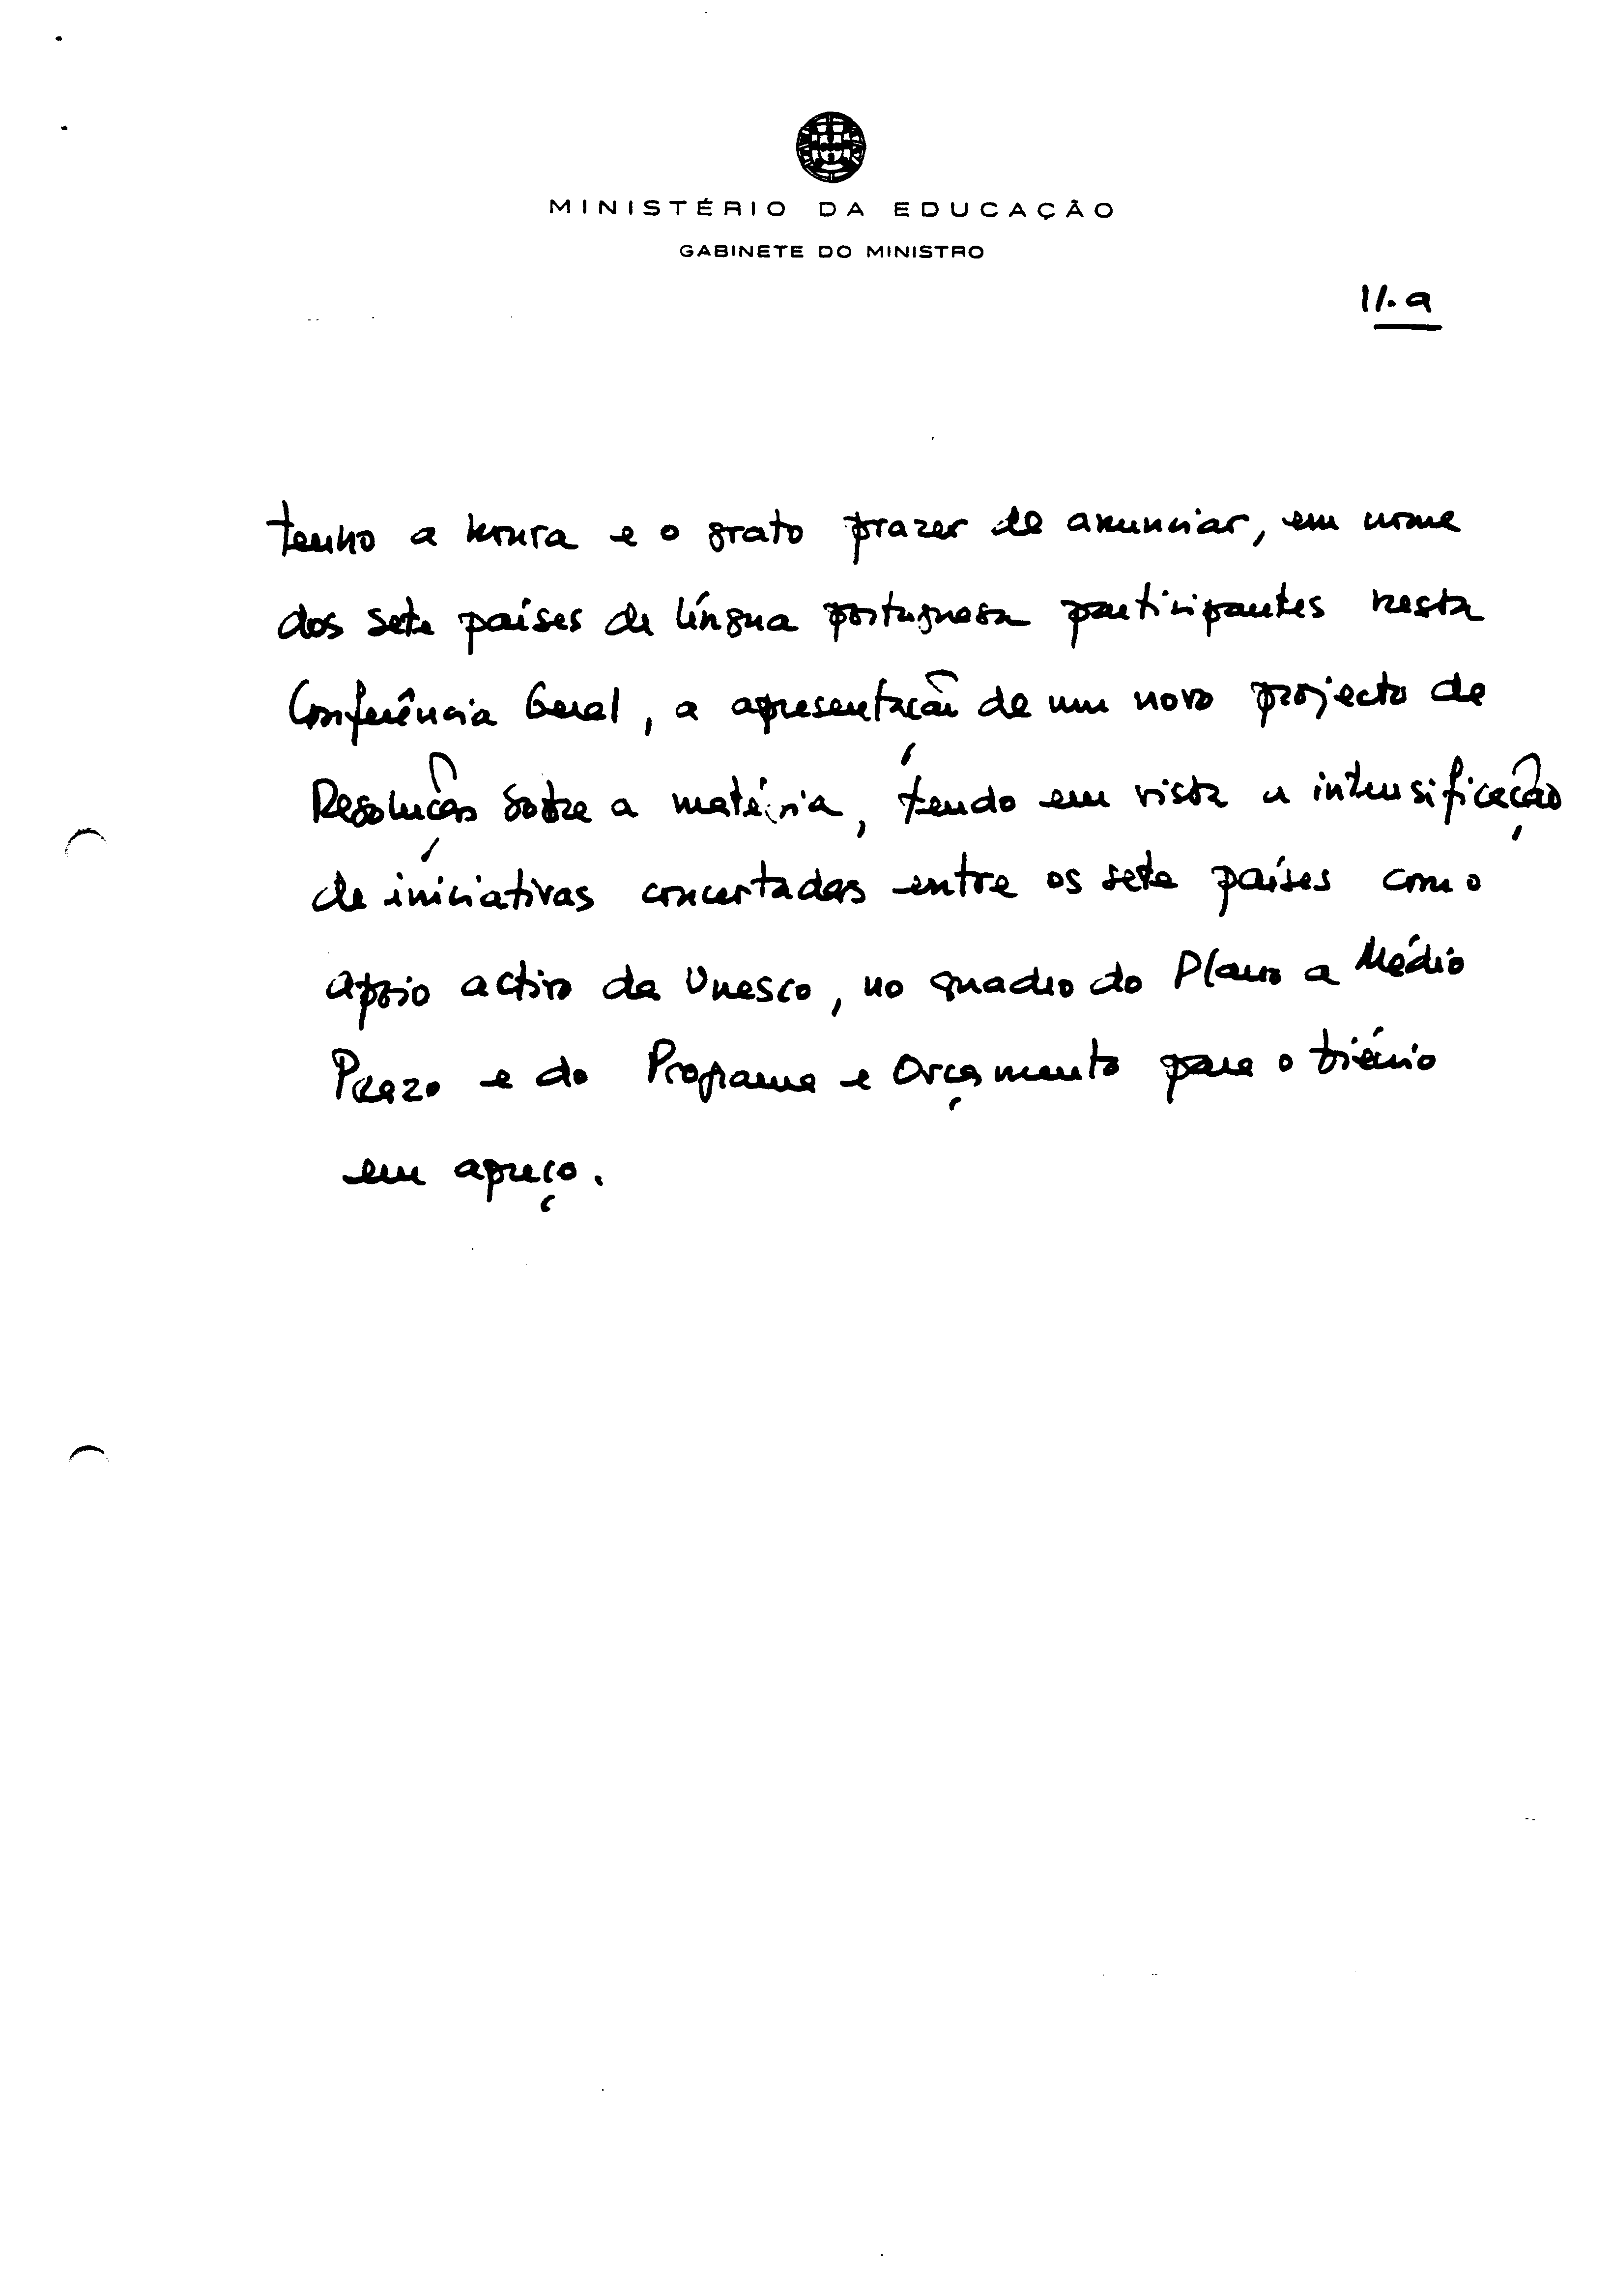 MINISTÉRIO DA EDUCAÇÃO
GABINETE DO MINISTRO
11.a
tenho a honra e o grato prazer de anunciar, em nome
dos sete países de língua portuguesa participantes nesta
Conferência Geral, a apresentação de um novo projecto de
Resolução sobre a matéria, tendo em vista a intensificação
de iniciativas concertadas entre os sete países com o
apoio activo da Unesco, no quadro do Plano a Médio
Prazo e do Programa e Orçamento para o biénio
em apreço.